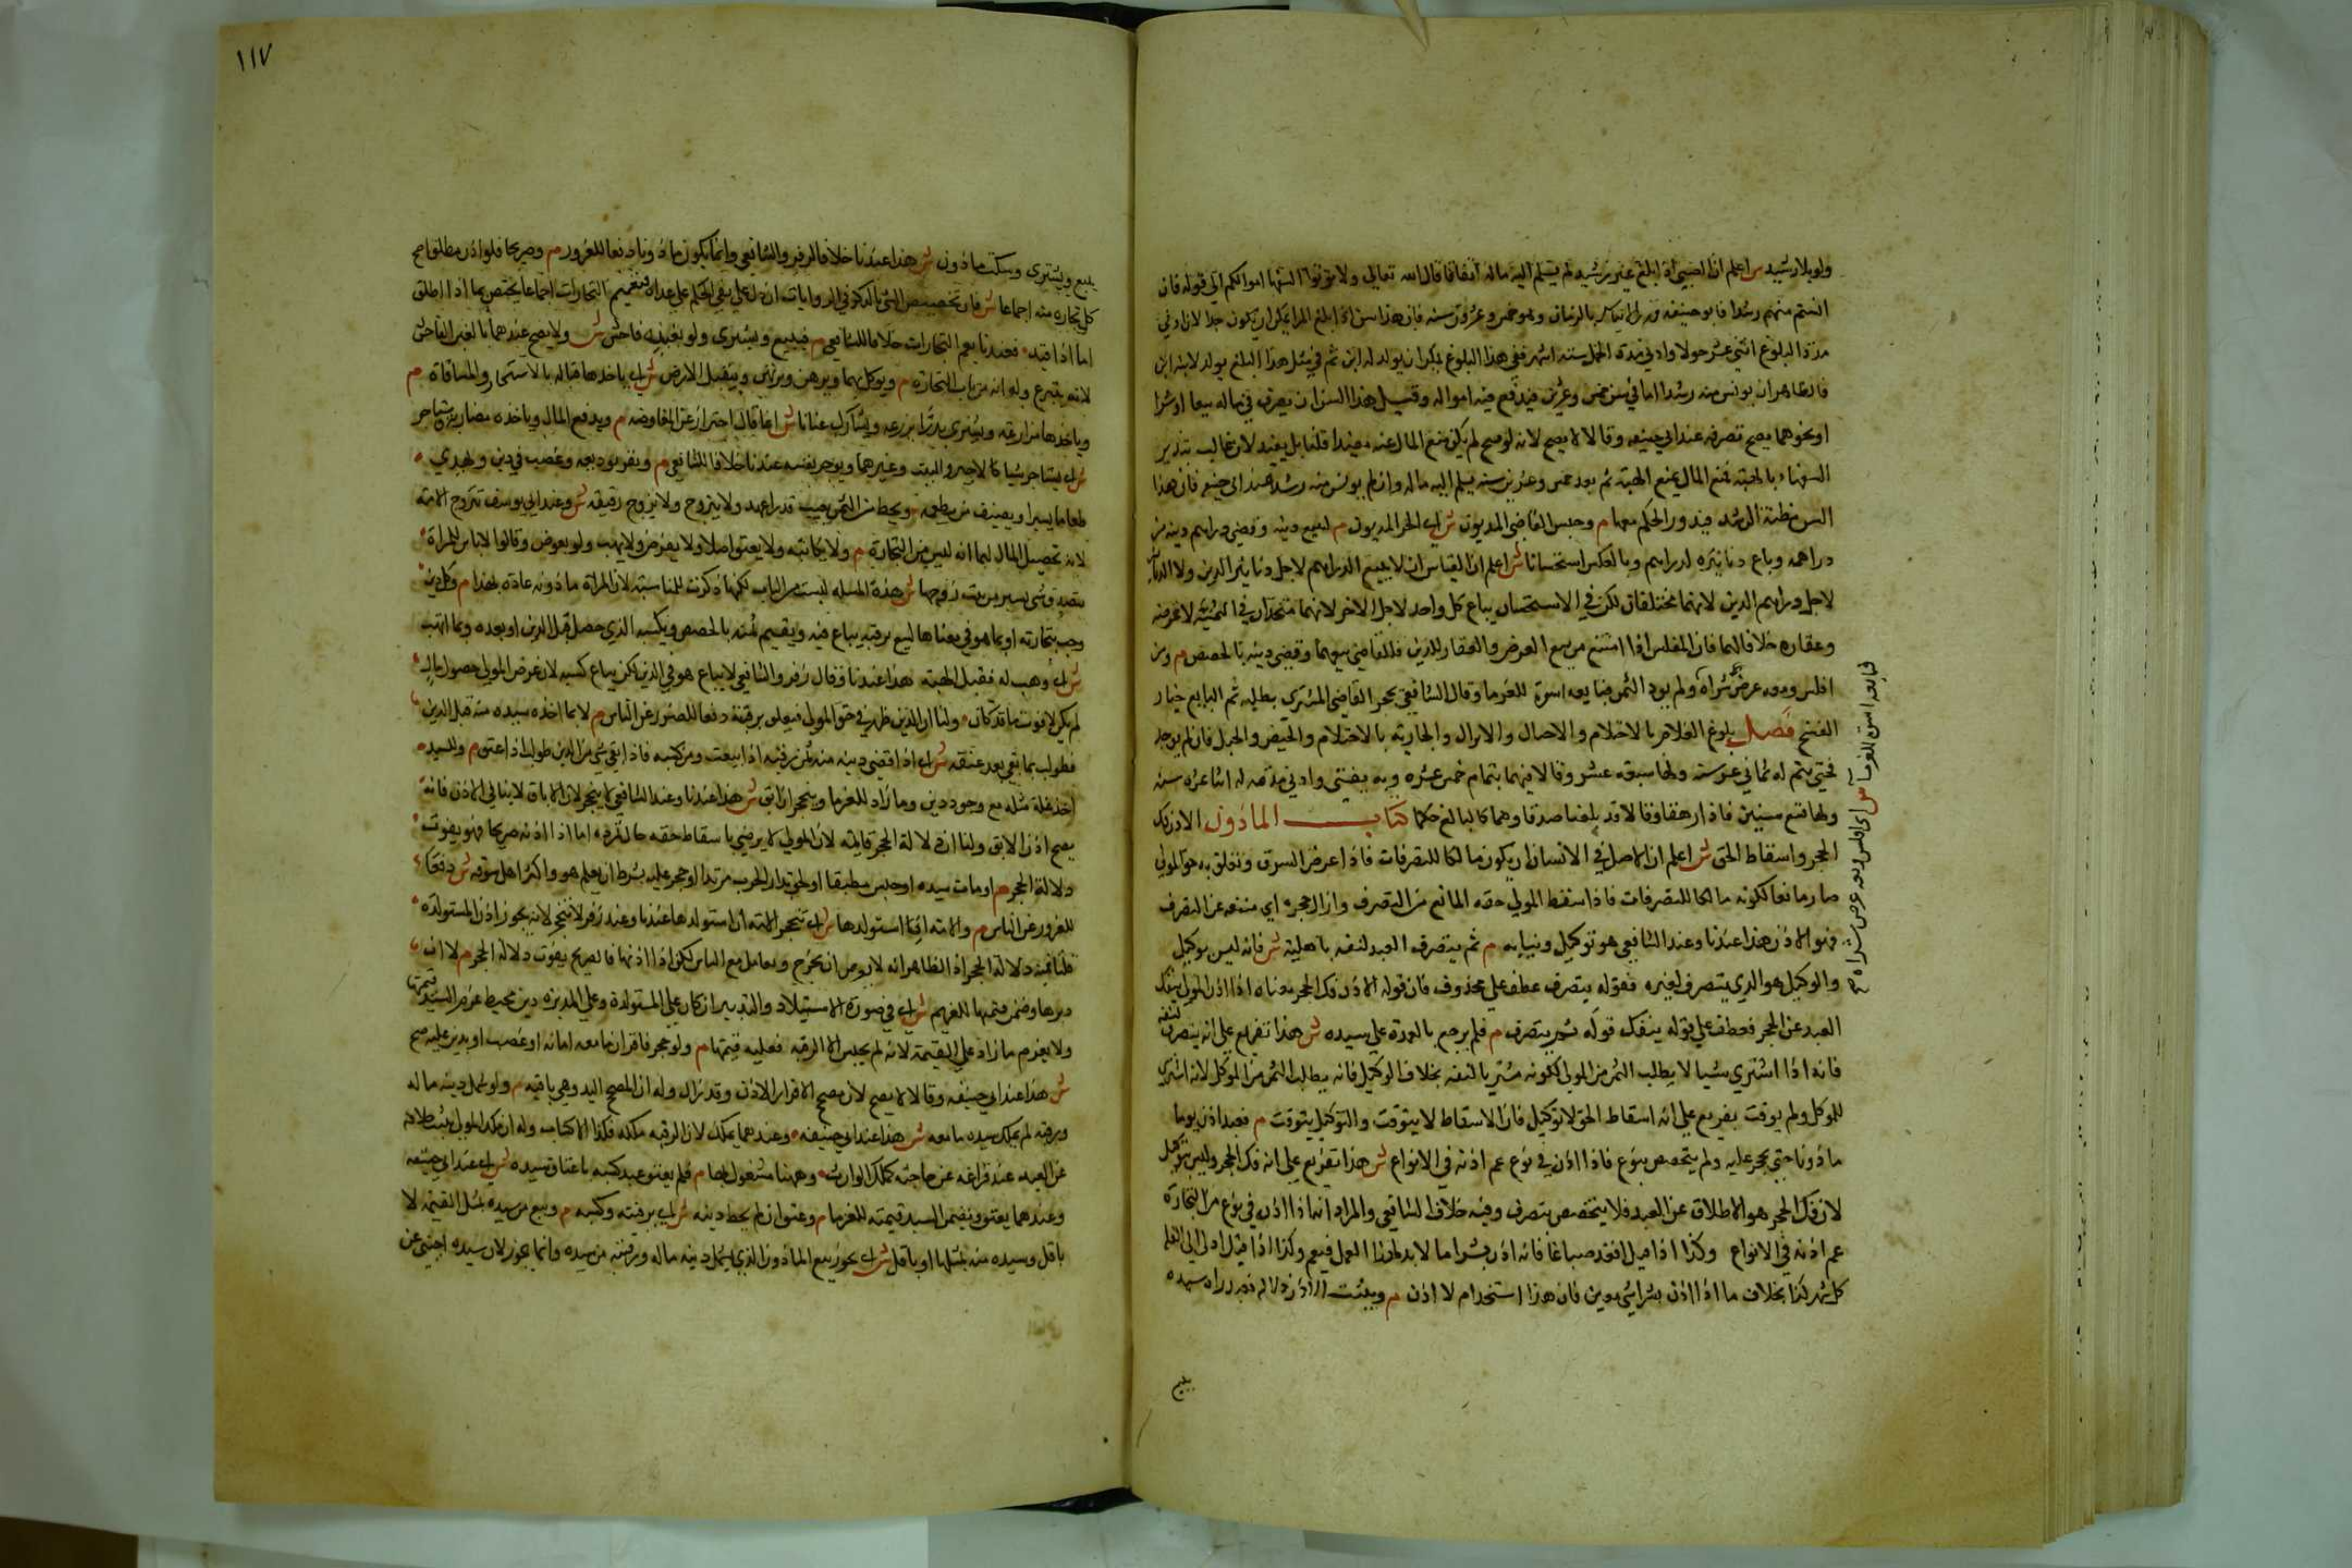 ولو بلا رشيد ش اعلم ان الصبي اذا بلغ غير رشيد لم يسلم اليه ماله اتفاقا قال الله تعالى ولا تؤتوا السفها اموالكم الى قوله فان
انستم منهم رشدا فابو حنيفة قدر الايناس بالزمان وهو خمس وعشرون سنة فان هذا سن اذا بلغ المرا يمكن ان يكون جدا لان ادنى
مدة البلوغ اثنى عشر حولا وادنى مدة الحمل ستة اشهر ففي هذا البلوغ يمكن ان يولد له ابن ثم في مثل هذا المبلغ يولد لابنه ابن
فالظاهر ان يونس منه رشدا ما في سن خمس وعشرين فيدفع فيه امواله وقبل هذا السن ان تصرف في ماله بيعا او شرا
او نحوهما يصح تصرفه عند ابي حنيفه وقالا لا يصح لانه لو صح لم يكن منع المال عنه مفيدا قلنا بل يفيد لان غالب تبذير
السفهاء بالهبة فمنع المال يمنع الهبة ثم بعد خمس وعشرين سنة يسلم اليه ماله وان لم يونس منه رشد عند ابي حنيفه فان هذا
السن مظنة الرشد فيدور الحكم معها م وحبس القاضي المديون ش اي الحر المديون م لبيع دينه وقضي دراهم دينه من
دراهمه وباع دنانيره لدراهم وبالعكس استحسانا ش اعلم ان القياس ان لا يبيع الدراهم لاجل دنانير الدين ولا الدنانير
لاجل دراهم الدين لانهما مختلفان لكن في الاستحسان يباع كل واحد لاجل الاخر لانهما متحدان في الثمنية لا عرضه
وعقاره خلافا لهما فان المفلس اذا امتنع من بيع العرض والعقار للدين فالقاضي يبيعهما وقضى دينه بالحصص م ومن
افلس ومعه عرض شراه ولم يود الثمن فبايعه اسوة للغرما وقال الشافعي يحجر القاضي المشتري بطلبه ثم البايع خيار
الفسخ فصل بلوغ الغلام بالاحتلام والاحبال والانزال والجارية بالاحتلام والحيض والحبل فان لم يوجد
فحتى يتم له ثماني عشرة سنة ولها سبعة عشر وقالا فيهما بتمام خمس عشره وبه يفتى وادنى مدته له اثنا عشره سنة
ولها تسع سنين فاذا راهقا وقالا قد بلغنا صدقا وهما كالبالغ حكما كتاب الماذون الاذن فك
الحجر واسقاط الحق ش اعلم ان الاصل في الانسان ان يكون مالكا للتصرفات فاذا عرض له الرق وتعلق به حق المولى
صار مانعا لكونه مالكا للتصرفات فاذا اسقط المولى حقه المانع من التصرف وازال حجره اي منعه عن التصرف
فهو الاذن هذا عندنا وعند الشافعي هو توكيل ونيابه م ثم يتصرف العبد لنفسه باهليته ش فانه ليس بوكيل
والوكيل هو الذي يتصرف لغيره فقوله يتصرف عطف على محذوف فان قوله الاذن فك الحجر معناه اذا اذن المولى ينفك
العبد عن الحجر فعطف على قوله ينفك قوله ثم يتصرف م فلم يرجع بالعهدة على سيده ش هذا تفريع على انه يتصرف لنفسه
فانه اذا اشترى شيا لا يطلب الثمن من المولى لكونه مشتريا لنفسه بخلاف الوكيل فانه يطلب الثمن من الموكل لانه اشترى
للموكل ولم يوقت يفرع على انه اسقاط الحق لا توكيل فان الاسقاط لا يتوقت والتوكيل يتوقت م فعبد اذن يوما
ماذونا حتى يحجر عليه ولم يتخصص بنوع فاذا اذن في نوع عم اذنه في الانواع ش هذا تفريع على انه فك الحجر وليس بتوكيل
لان فك الحجر هو الاطلاق عن العبد فلا يتخصص بتصرف وفيه خلاف الشافعي والمراد انه اذا اذن في نوع من التجارة
عم اذنه في الانواع وكذا اذا قيل اقعد صباغا فانه اذن بشرا ما لابد لهذا العمل فيعم وكذا اذا قيل اد الي الغلة
كل شهر كذا بخلاف ما اذا اذن بشرا شي معين فان هذا استخدام لا اذن م ويثبت الاذن دلالة فعبد راه سيده
يبيع
فبايعه اسوة للغرما ش اي افلس ومعه عرض شراه
١١٧
يبيع ويشتري وسكت ماذون ش هذا عندنا خلافا لزفر والشافعي وانما يكون ماذونا دفعا للغرور م وصريحا فلو اذن مطلقا صح
كل تجاره منه اجماعا ش فان تخصيص الشي بالذكر في الروايات يدل على نفي الحكم عما عداه فتعميم التجارات اجماعا يختص بما اذا اطلق
اما اذا قيد فعندنا يعم التجارات خلافا للشافعي م فيبيع ويشتري ولو بغبن فاحش ش ولا يصح عندهما بالغبن الفاحش
لانه تبرع وله انه من باب التجارة م ويوكل بهما ويرهن ويرتهن ويتقبل الارض ش اي ياخذها قبالة بالاستيجار والمساقاة م
وياخذها مزارعة ويشتري بذرا يزرعه ويشارك عنانا ش انما قال احترازا عن المفاوضه م ويدفع المال وياخذه مضاربة ويستاجر
ش اي يستاجر شيا كالاجير والبيت وغيرهما ويوجر نفسه عندنا خلافا للشافعي م ويقر بوديعه وغصب ودين ويهدي
طعاما يسيرا ويضيف من يطعمه ويحط من الثمن بعيب قدرا عهد ولا يتزوج ولا يزوج رقيقه ش وعند ابي يوسف تزوج الامة
لانه تحصيل المال لهما انه ليس من التجارة م ولا يكاتبه ولا يعتق اصلا ولا يقرض ولا يهب ولو بعوض وقالوا لا باس للمراة
بتصدق شي يسير من بيت زوجها ش هذه المسله ليست من الباب لكنها ذكرت للمناسبة لان المراة ماذونه عادة بهذا م وكل دين
وجب بتجارته او بما هو في معناها لبيع برقبته يباع فيه ويقسم ثمنه بالحصص وبكسبه الذي حصل قبل الدين او بعده وبما اتهب
ش اي وهب له فقبل الهبة هذا عندنا وقال زفر والشافعي لا يباع هو في الدين لكن يباع كسبه لان غرض المولى حصول مال
لم يكن لا فوت ما قد كان ولنا ان الدين ظهر في حق المولى فيتعلق برقبته دفعا للضرر عن الناس م لا بما اخذه سيده منه قبل الدين
فطولب بما بقي بعد عتقه ش اي اذا قضى دينه من ثمن رقبته اذا بيعت ومن كسبه فاذا بقي شي من الدين طولب اذا عتق م ولسيده
اخذ غلة مثله مع وجود دين وما زاد للغرما وينحجر ان ابق ش هذا عندنا وعند الشافعي لا ينحجر لان الاباق لا ينافي الاذن فانه
يصح اذن الابق ولنا ان دلالة الحجر قايمة لان المولى لا يرضى باسقاط حقه حال تمرده اما اذا اذنه صريحا فهو يفوت
دلالة الحجر م او مات سيده او جن مطبقا او لحق بدار الحرب مرتدا او حجر عليه بشرط ان يعلم هو واكثر اهل سوقه ش دفعا
للغرور عن الناس م والامة ان استولدها ش اي تنحجر الامة ان استولدها عندنا وعند زفر لا تنحجر لانه يجوز اذن المستولدة
قلنا فيه دلالة الحجر اذ الظاهر انه لا يرضى ان تخرج وتعامل مع الناس لكن اذا اذنها فالصريح يفوت دلالة الحجر م لا ان
دبرها وضمن قيمتها للغريم ش اي في صورة الاستيلاد والتدبير ان كان على المستولدة وعلى المدبره دين محيط غرم السيد قيمتها
ولا يغرم ما زاد على القيمة لانه لم يحبس الا الرقبه فعليه قيمتها م ولو حجر فاقر ان ما معه امانة او غصب او بدين عليه صح
ش هذا عند ابي حنيفة وقالا لا يصح لان مصحح الاقرار الاذن وقد زال وله ان المصحح اليد وهي باقيه م ولو شمل دينه ماله
ورقبته لم يملك سيده ما معه ش هذا عند ابي حنيفه وعندهما يملك لان الرقبه ملكه فكذا الاكتساب وله ان ملك المولى يثبت خلافة
عن العبد عند فراغه عن حاجته كملك الوارث وههنا مشغول بها م فلم يعتق عبد كسبه باعتاق سيده ش اي عند ابي حنيفه
وعندهما يعتق ويضمن السيد قيمته للغرما م وعتق ان لم يحط دينه ش اي برقبته وكسبه م وبيع من سيده بمثل القيمة لا
باقل وسيده منه بمثلها او باقل ش اي يجوز بيع الماذون الذي يشمل دينه ماله ورقبته من سيده وانما يجوز لان سيده اجنبي عن